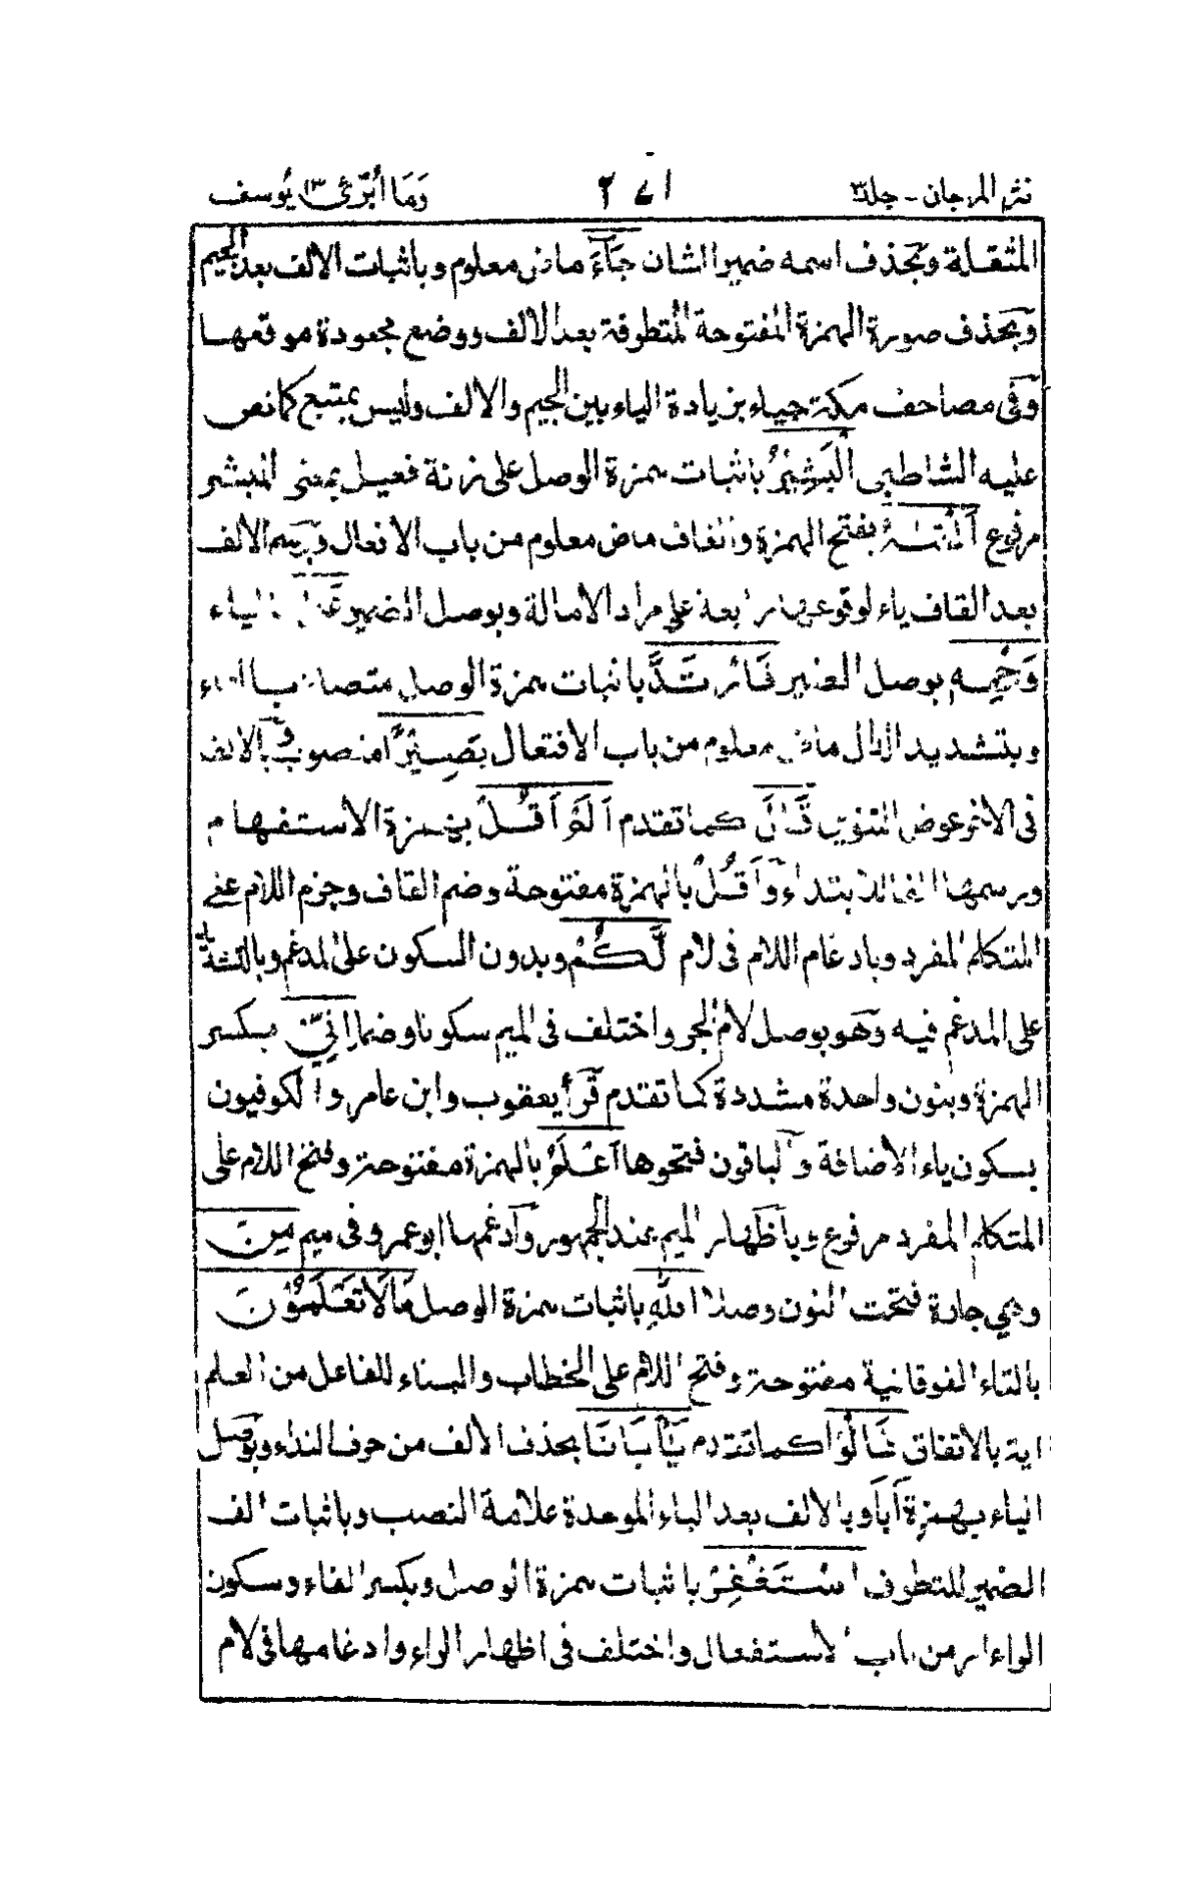 نثر المرجان - جلد ٣ ٢٧١ وَمَا أُبَرِّئُ ١٣ يُوسف
المثقلة وبحذف اسمه ضمير الشان جَآءَ ماض معلوم وباثبات الالف بعد الجيم
وبحذف صورة الهمزة المفتوحة المتطرفة بعد الالف ووضع مجعودة موقعها
وفي مصاحف مكة جياء بزيادة الياء بين الجيم والالف وليس بمتبع كما نص
عليه الشاطبي الْبَشِيْرُ باثبات همزة الوصل على زنة فعيل بمعنى المبشر
مرفوع اَلْقٰىهُ بفتح الهمزة والقاف ماض معلوم من باب الافعال وبرسم الالف
بعد القاف ياء لوقوعها رابعة على مراد الامالة وبوصل الضمير عَلٰى بالياء
وَجْهِهٖ بوصل الضمير فَارْتَدَّ باثبات همزة الوصل متصلة بالفاء
وبتشديد الدال ماض معلوم من باب الافتعال بَصِيْرًا منصوب وبالالف
في الاخر عوض التنوين قَالَ كما تقدم اَلَمْ اَقُلْ بهمزة الاستفهام
وبرسمها الفا للابتداء واَقُلْ بالهمزة مفتوحة وضم القاف وجزم اللام على
المتكلم المفرد وبادغام اللام في لام لَّكُمْ وبدون السكون على المدغم وبالتشديد
على المدغم فيه وهو بوصل لام الجر واختلف في الميم سكونا وضما اِنِّيْٓ بكسر
الهمزة وبنون واحدة مشددة كما تقدم قرأ يعقوب وابن عامر والكوفيون
بسكون ياء الاضافة والباقون فتحوها اَعْلَمُ بالهمزة مفتوحة وفتح اللام على
المتكلم المفرد مرفوع وباظهار الميم عند الجمهور وادغمها ابو عمرو في ميم مِنَ
وهي جارة فتحت النون وصلا اللّٰهِ باثبات همزة الوصل مَا لَا تَعْلَمُوْنَ
بالتاء الفوقانية مفتوحة وفتح اللام على الخطاب والبناء للفاعل من العلم
اية بالاتفاق قَالُوْا كما تقدم يٰٓاَبَانَا بحذف الالف من حرف النداء وبوصل
الياء بهمزة اَبَا وبالالف بعد الباء الموحدة علامة النصب وباثبات الف
الضمير للتطرف اسْتَغْفِرْ باثبات همزة الوصل وبكسر الفاء وسكون
الراء امر من باب الاستفعال واختلف في اظهار الراء وادغامها في لام